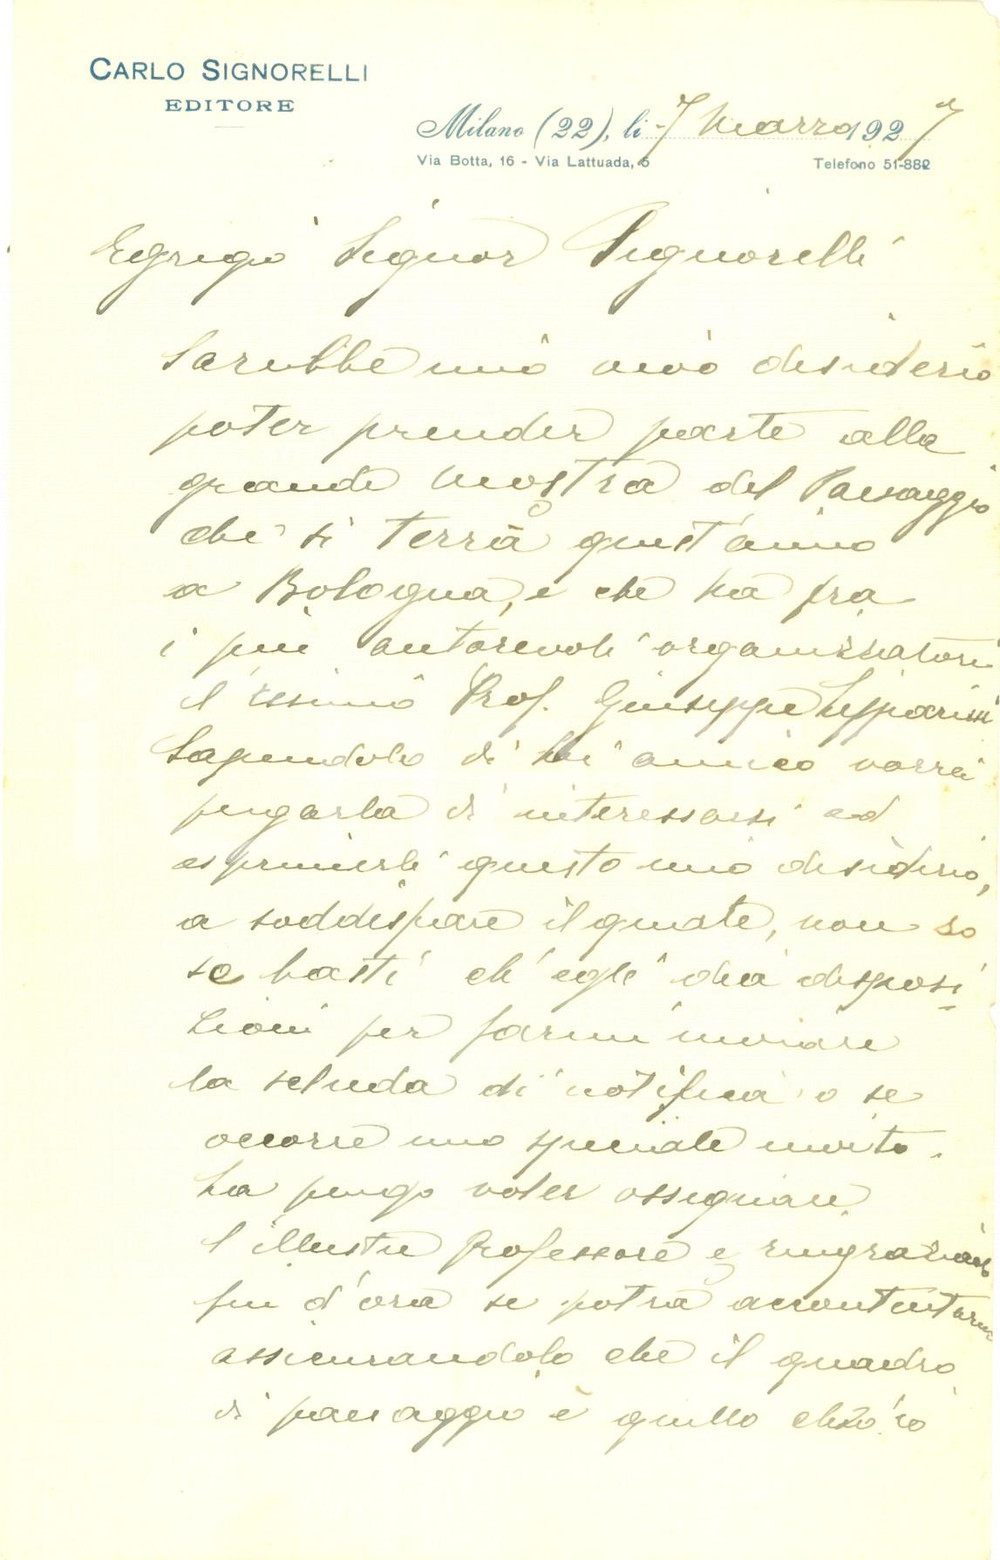 CARLO SIGNORELLI
EDITORE
Milano (22), li 7 Marzo 1927
Via Botta, 16 - Via Lattuada, 5
Telefono 51-882
Egregio Signor Signorelli
Sarebbe mio vivo desiderio
poter prender parte alla
grande mostra del Paesaggio
che si terrà quest'anno
a Bologna, e che ha fra
i più autorevoli organizzatori
il Prof. Giuseppe Lipparini
Sapendolo di Lei amico vorrei
pregarla di interessarsi ed
esprimerli questo mio desiderio,
a soddisfare il quale, non so
se basti ch'egli dia disposi
zioni per farmi inviare
la scheda di notifica o se
occorre uno speciale invito.
La prego voler ossequiare
l'illustre Professore e ringraziarlo
fin d'ora se potrà accontentarmi
assicurandolo che il quadro
di paesaggio è quello ch'io